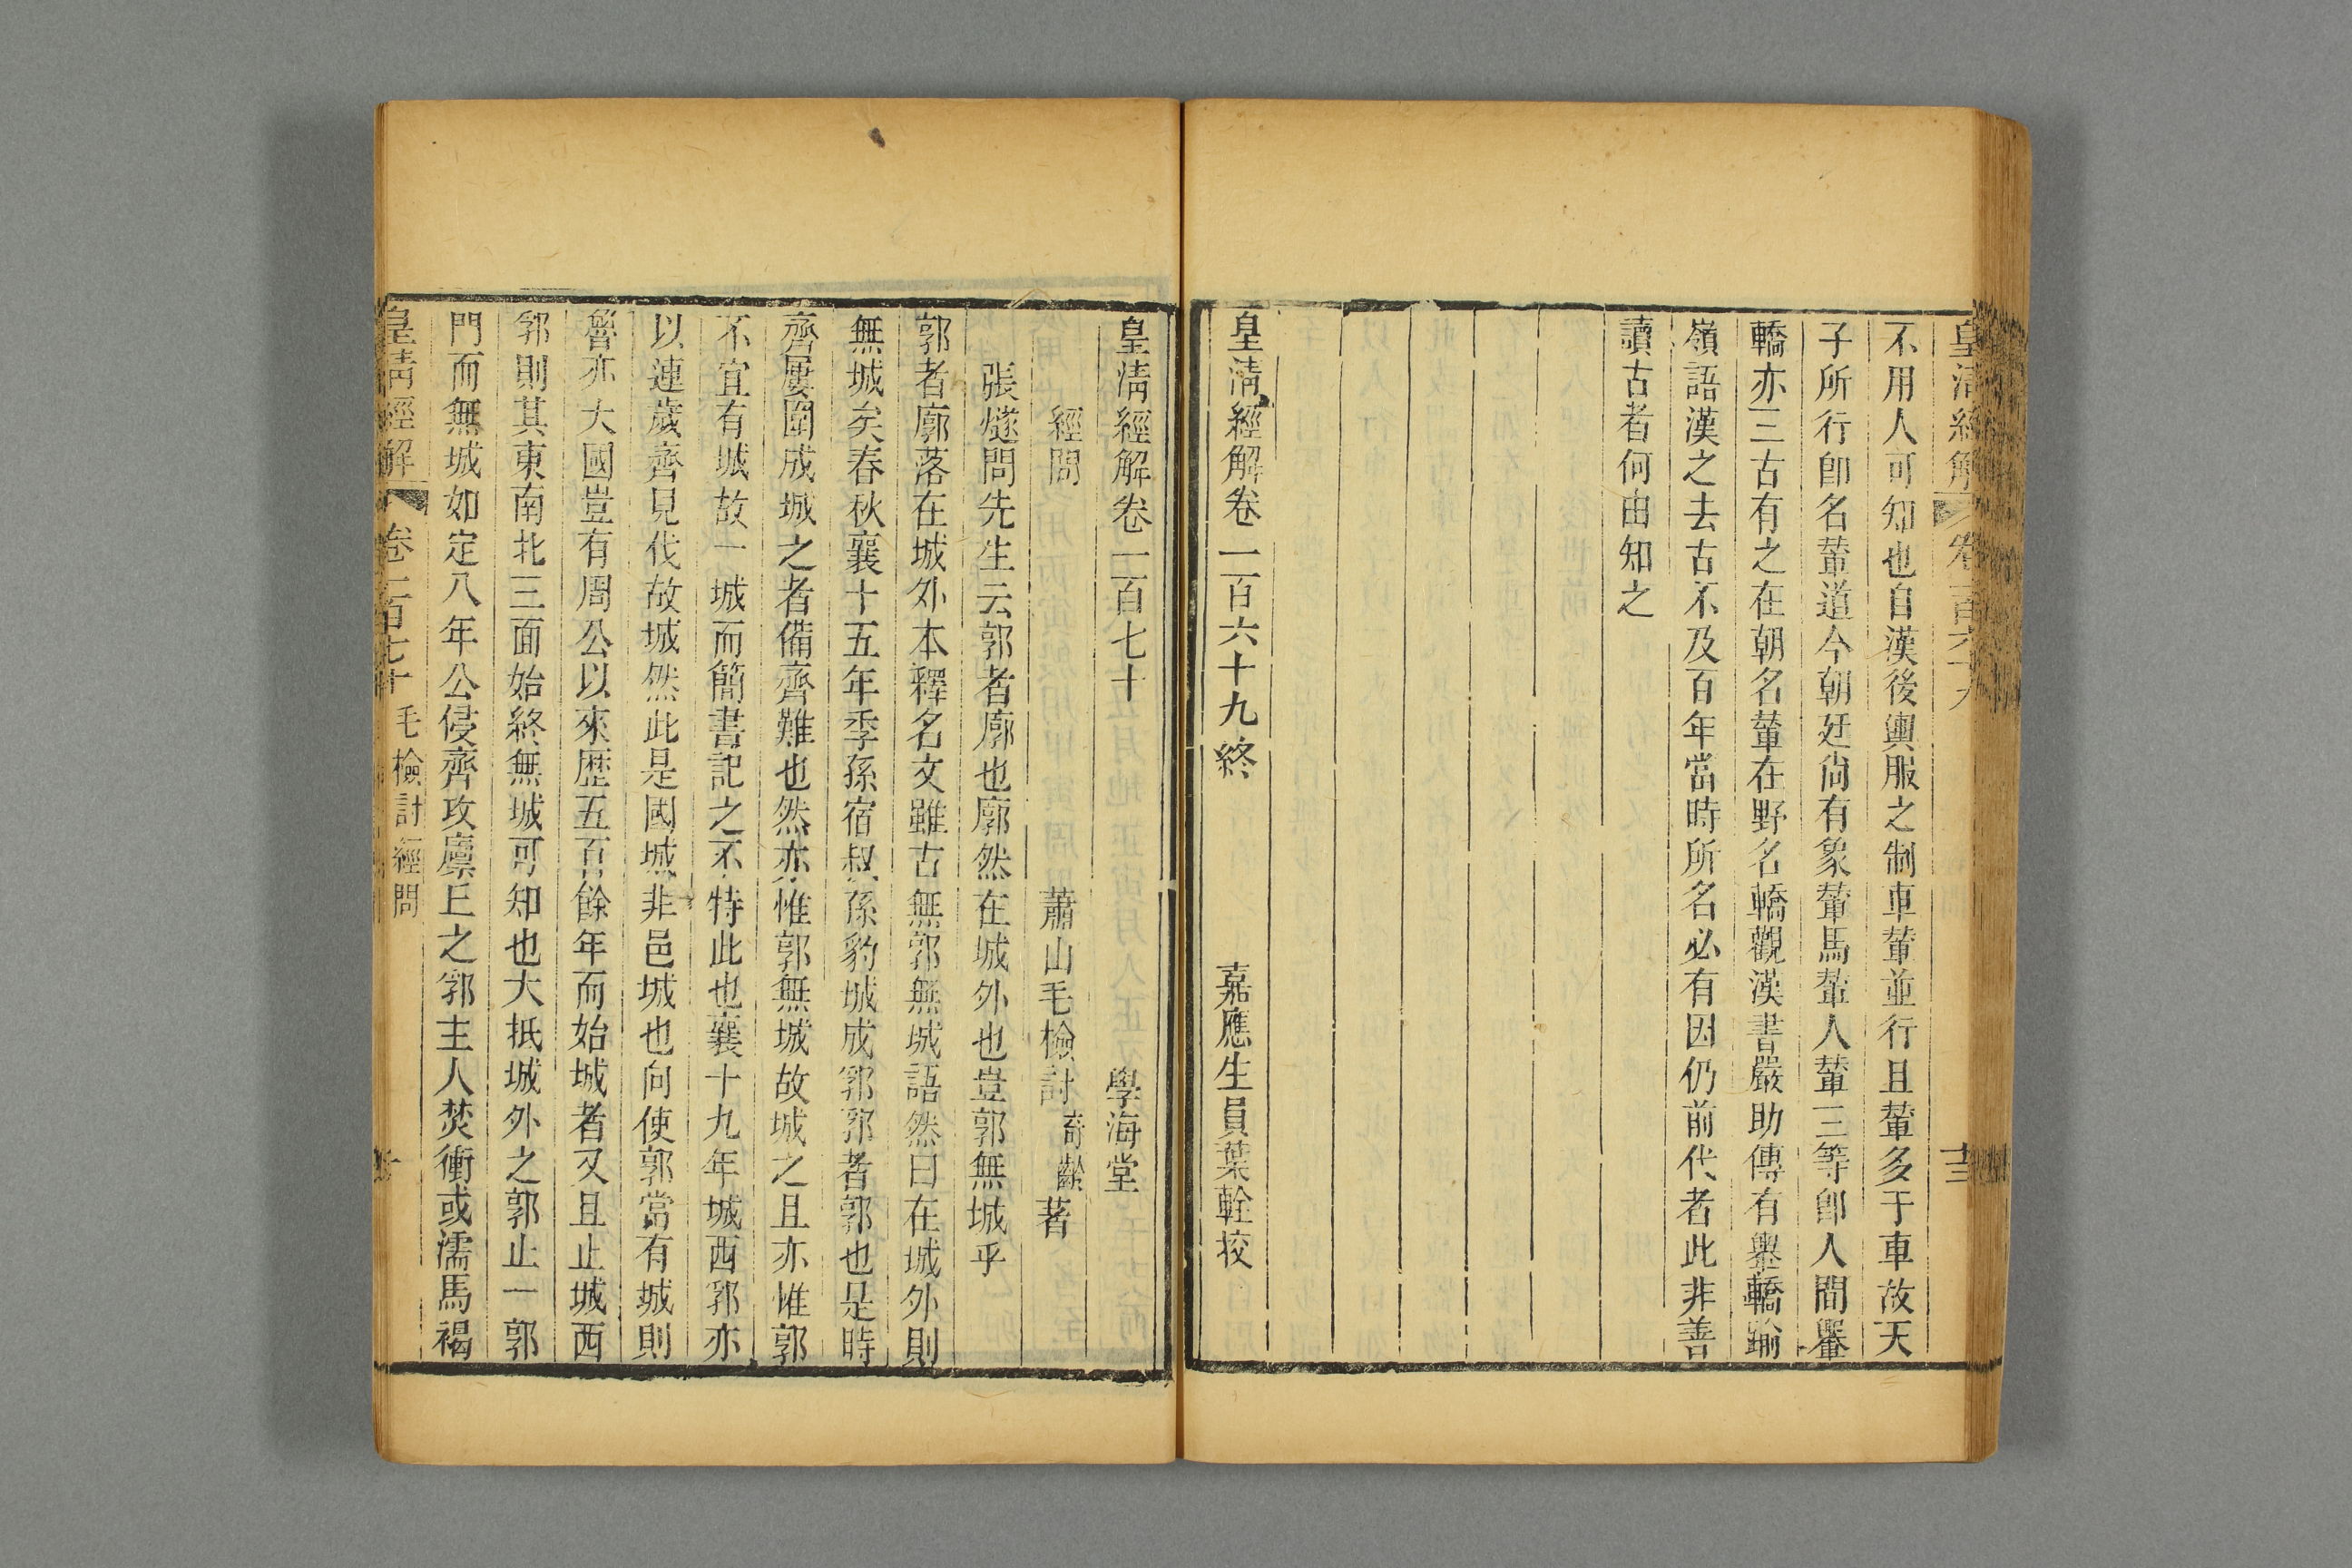 皇淸經解 卷一百六十九 十三
不用人可知也自漢後輿服之制車輦並行且輦多于車故天
子所行卽名輦道今朝廷尙有象輦馬輦人輦三等卽人間轝
轎亦三古有之在朝名輦在野名轎觀漢書嚴助傳有轝轎踰
嶺語漢之去古不及百年當時所名必有因仍前代者此非善
讀古者何由知之
皇淸經解卷一百六十九終 嘉應生員葉輇校
皇淸經解卷一百七十 學海堂
經問 蕭山毛檢討奇齡著
張燧問先生云郭者廓也廓然在城外也豈郭無城乎
郭者廓落在城外本釋名文雖古無郭無城語然曰在城外則
無城矣春秋襄十五年季孫宿叔孫豹城成郛郛者郭也是時
齊屢圍成城之者備齊難也然亦惟郭無城故城之且亦惟郭
不宜有城故一城而簡書記之不特此也襄十九年城西郛亦
以連歲齊見伐故城然此是國城非邑城也向使郭當有城則
魯亦大國豈有周公以來歴五百餘年而始城者又且止城西
郛則其東南北三面始終無城可知也大抵城外之郭止一郭
門而無城如定八年公侵齊攻廩丘之郛主人焚衝或濡馬褐
皇淸經解 卷一百七十 毛檢討經問